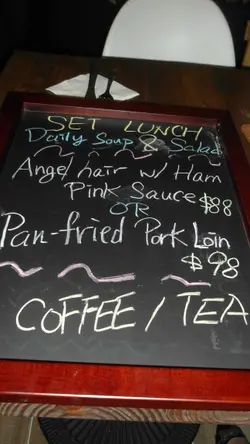 SET LUNCH
Daily Soup & Salad
Angel hair w/ Ham
Pink Sauce $88
OR
Pan-fried Pork Loin
$98
COFFEE / TEA